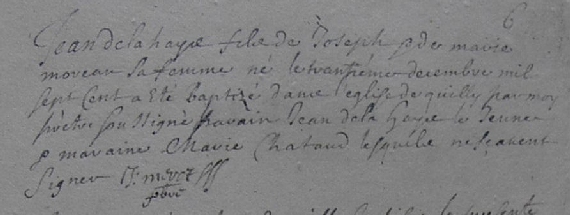 6
Jean delahaye fils de Joseph & de marie
moreau sa femme né le trantiéme decembre mil
sept Cent a eté baptizé dans l'eglise de quilly par moy
prètre sou signé parain Jean de la Haye le Jeune
& maraine Marie Chataud lesquels ne sçavent
signer